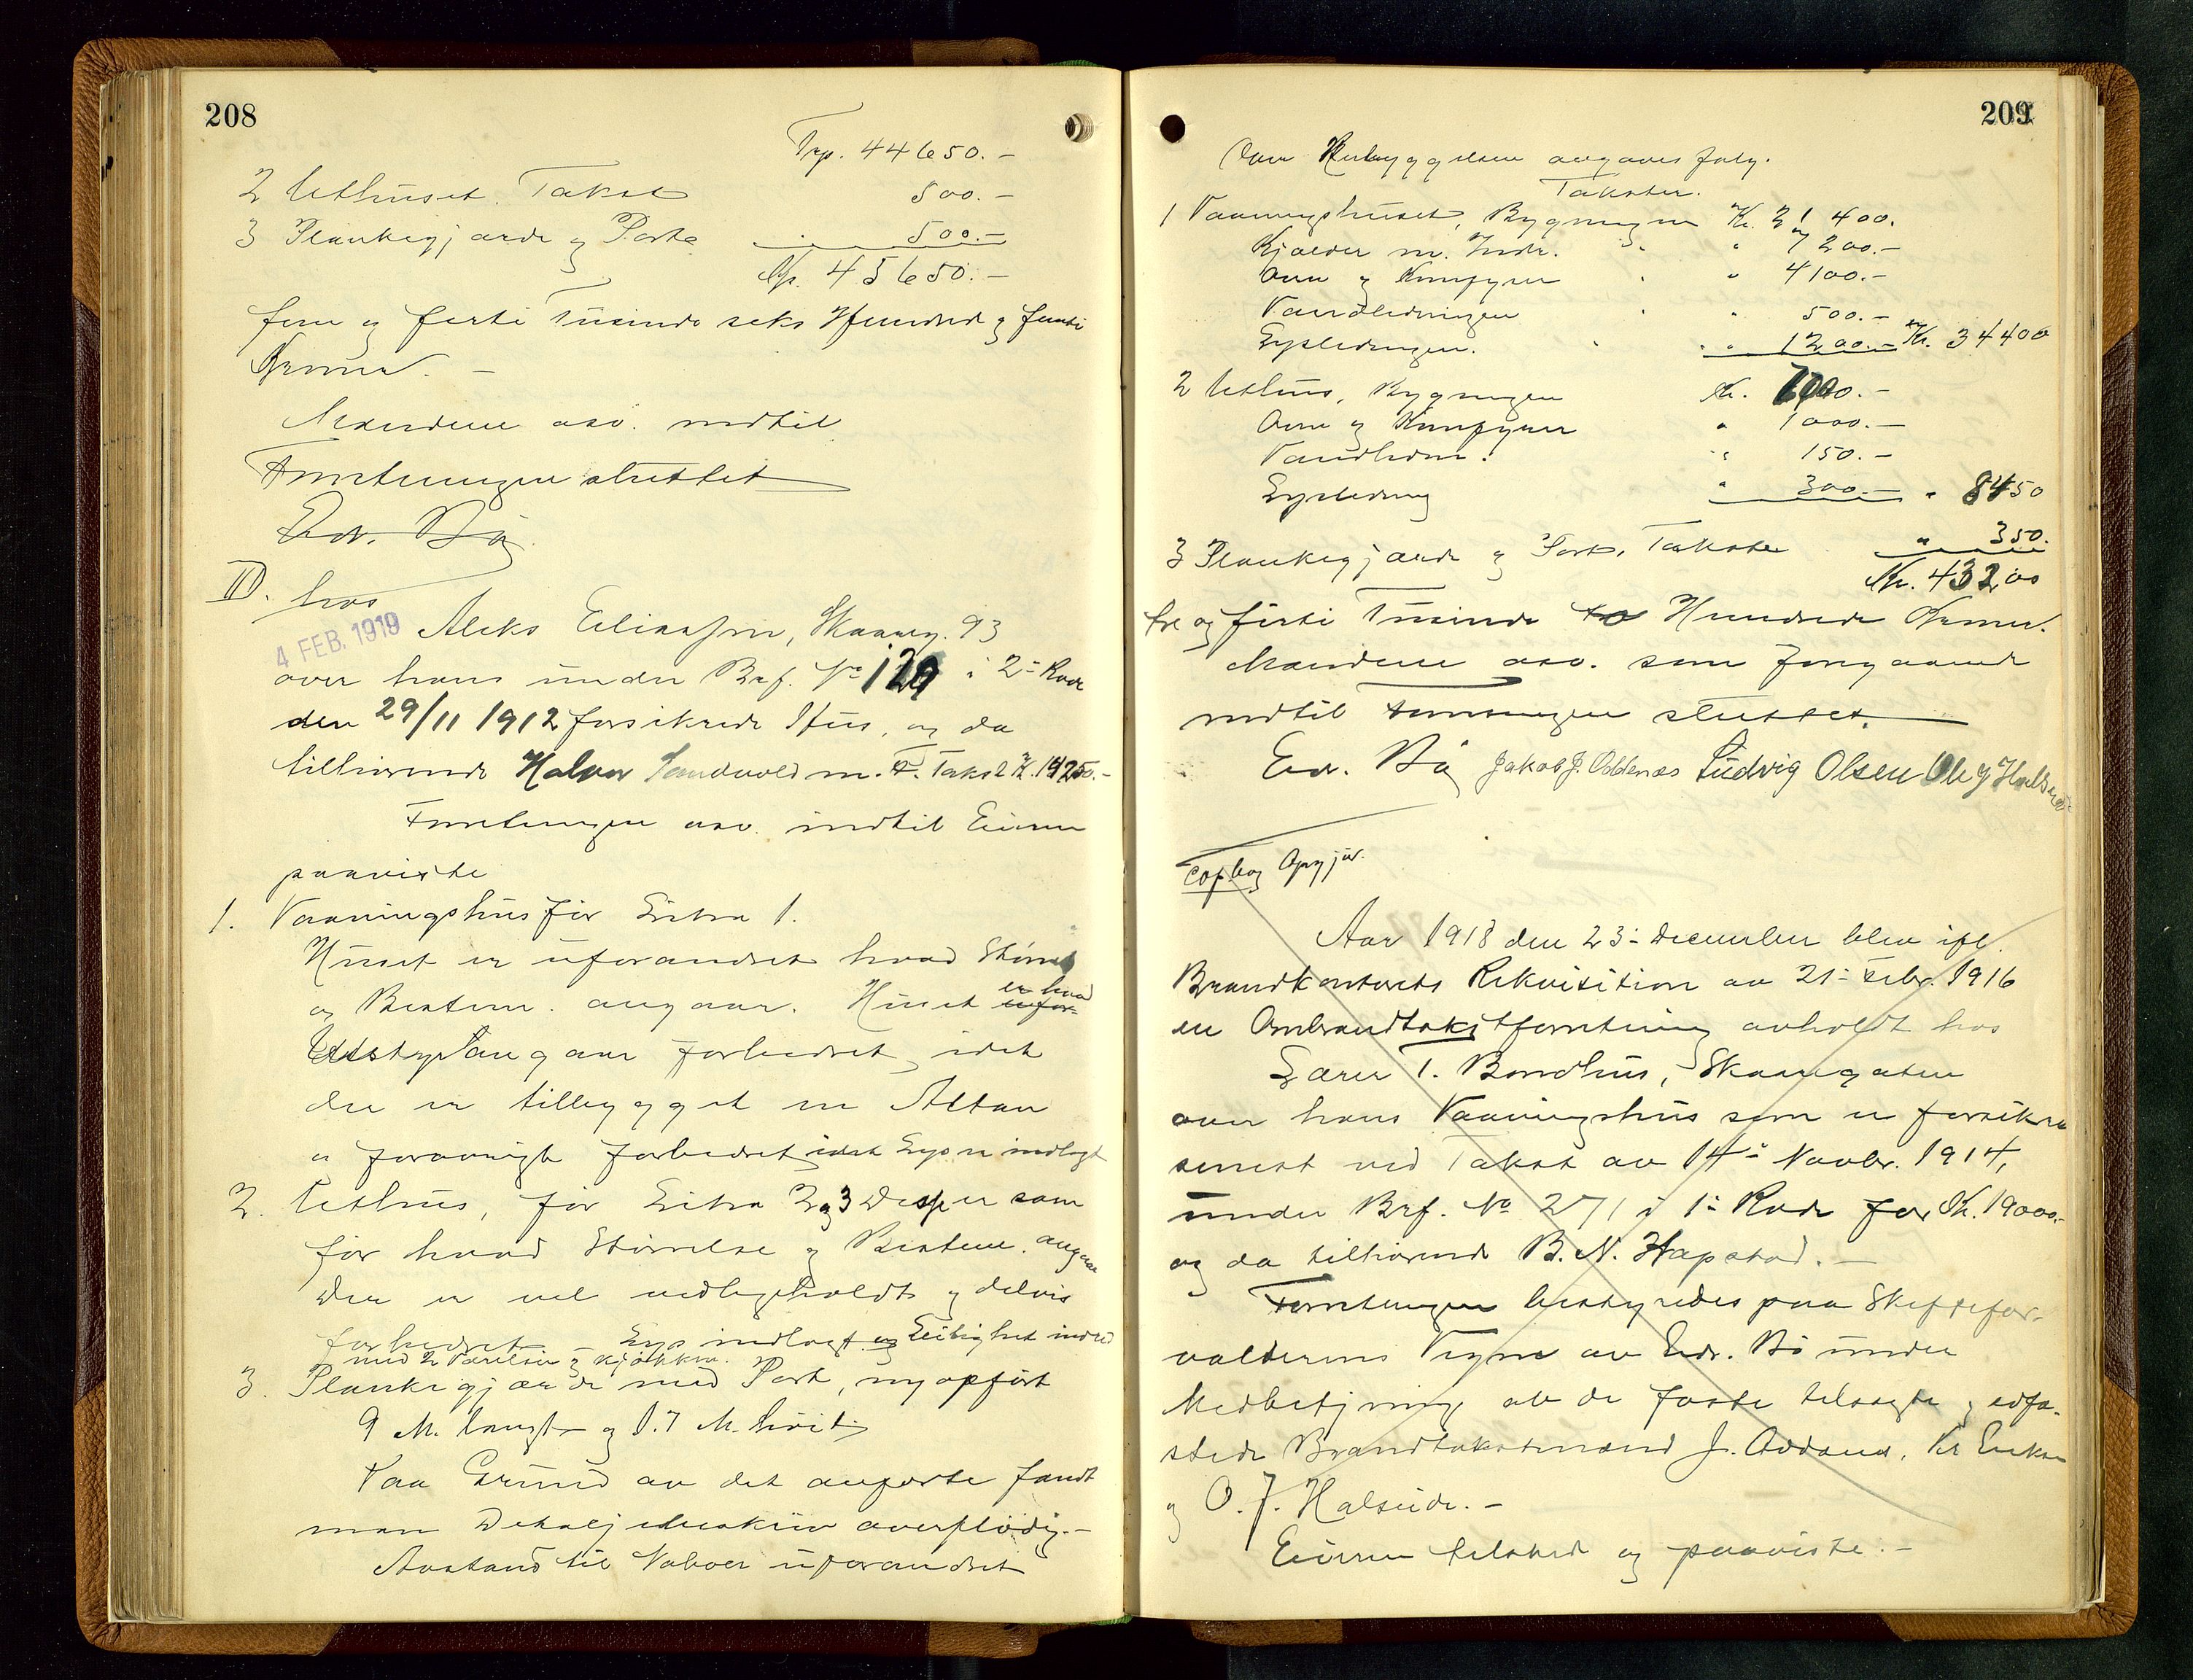 208
Trp. 44650.-
2 Uthuset. Takst 500.-
3 Plankegjærde og Port 500.-
Kr. 45650.-
fem og førti Tusinde seks Hundred og femti
Kroner. -
Mændene aso. indtil
Forretningen sluttet
Edv. Bø
II. hos
4 FEB. 1919
Aleks Eliassen, Skaareg. 93
over hans under Brf. No 129 i 2- Rode
den 29/11 1912 forsikrede Hus, og da
tilhørende Halvor Sandvold m. Takst K. 19250.-
Forretningen aso. indtil Eieren
paaviste
1. Vaaningshus før Litra 1.
Huset er uforandret hvad Størrelse
og Bestem. angaar. Huset er hvad
Utstyr angaar forbedret, idet
der er tilbygget en Altan
og forøvrigt forbedret idet Lys er indlagt
2. Uthus, før Litra 2 og 3 Disse er som
før hvad Størrelse og Bestem. angaar
Der er vel vedligeholdt og delvis
forbedret Lys indlagt og Leilighet indred
med 2 Værelser og kjøkken.
3. Plankegjærde med Port, nyopført
9 M. langt og 1.7 M. høit
Paa Grund av det anførte fandt
man Detaljebeskriv overflødig.-
Avstand til Naboer uforandret
209
Om Husbyggelsen avgaves følg.
Takster.
1 Vaaningshuset, Bygningen Kr. 21 400.
Kjælder m. Indr. " 7 200.-
Ovne og Komfyrer " 4100.-
Vandledningen " 500.-
Lysledningen. " 1200.- Kr. 34400
2 Uthus, Bygningen Kr. 7000.-
Ovne og Komfyrer " 1000.-
Vandledn. " 150.-
Lysledning " 300.- " 8450
3 Plankegjærde og Port, Takster " 350.
Kr. 432,00
tre og førti Tusinde to Hundrede Kroner.
Mændene aso. som foregaaende
indtil Forretningen sluttet.
Edv. Bø Jakob J. Oddenes Ludvig Olsen Ole J Halseide
Opgjør.
Aar 1918 den 23- December blev ifl.
Brandkontorets Rekvisition av 21- Febr. 1916
en Ombrandtakstforretning avholdt hos
Lærer T. Bondhus, Skaaregaten
over hans Vaaningshus som er forsikret
senest ved Takst av 14- Novbr. 1914,
under Brf. No 271 i 1- Rode for Kr. 19000.-
og da tilhørende B. N. Hapstad. -
Forretningen bestyredes paa Skiftefor-
valterens Vegne av Edv. Bø under
Medbetjening av de faste tilsagte og edfæ-
stede Brandtakstmænd J. Oddenes, Kr Eriksen
og O. J. Halseide. -
Eieren tilstede og paaviste. -